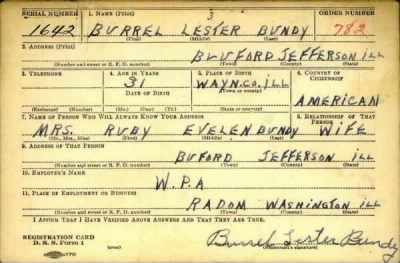 SERIAL NUMBER 1. NAME (Print) ORDER NUMBER
1642 BURREL LESTER BUNDY 782
(First) (Middle) (Last)
2. ADDRESS (Print)
BLUFORD JEFFERSON ILL
(Number and street or R. F. D. number) (Town) (County) (State)
3. TELEPHONE 4. AGE IN YEARS 5. PLACE OF BIRTH 6. COUNTRY OF CITIZENSHIP
31 WAYN.CO. ILL
DATE OF BIRTH (Town or county)
AMERICAN
(Exchange) (Number) (Mo.) (Day) (Yr.) (State or country)
7. NAME OF PERSON WHO WILL ALWAYS KNOW YOUR ADDRESS 8. RELATIONSHIP OF THAT PERSON
MRS. RUBY EVELEN BUNDY WIFE
(Mr., Mrs., Miss) (First) (Middle) (Last)
9. ADDRESS OF THAT PERSON
BUFORD JEFFERSON ILL
(Number and street or R. F. D. number) (Town) (County) (State)
10. EMPLOYER'S NAME
W.P.A
11. PLACE OF EMPLOYMENT OR BUSINESS
RADOM WASHINGTON ILL
(Number and street or R. F. D. number) (Town) (County) (State)
I AFFIRM THAT I HAVE VERIFIED ABOVE ANSWERS AND THAT THEY ARE TRUE.
REGISTRATION CARD
D. S. S. Form 1 (over) Burrel Lester Bundy
(Registrant's signature)